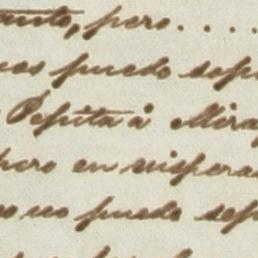 tanto, pero....
nos puedo sopo
Pepita á Mira
pero en vispera
no no puedo sepa